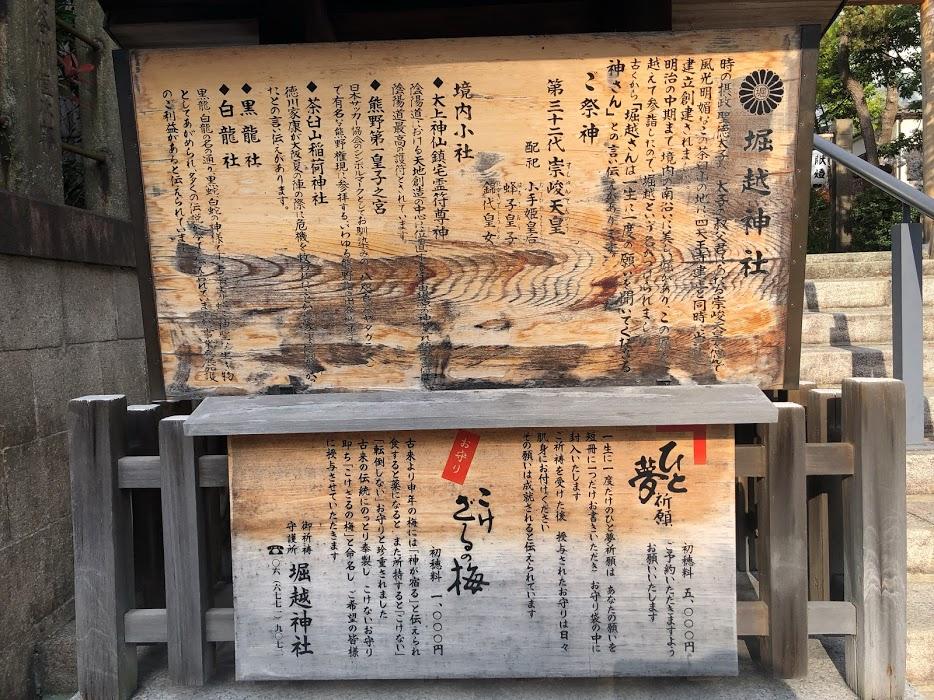 堀越神社
時の摂政 聖徳太子が
風光明媚なこの茶臼山の地に四天王寺建立と同時に
建立創建されました
明治の中期まで境内の南沿に美しい堀があり、この堀を
越えて参詣したので、堀越という名がつけられました
古くから「堀越さんは、一生に一度の願いを聞いてくださる
神さん」との言い伝えがあります。
ご祭神
第三十二代 崇峻天皇
配祀 小手姫皇后
蜂子皇子
錦代皇女
境内小社
◆太上神仙鎮宅霊符尊神
陰陽道における天地創造の中心に位置する
陰陽道最高の護符とされています。
◆熊野第一皇子之宮
日本サッカー協会のシンボルマークとしてお馴染みの八咫烏
で有名な熊野権現に参拝する、いわゆる熊野
◆茶臼山稲荷神社
徳川家康が大阪夏の陣の際に危機を
たとの言い伝えがあります。
◆黒龍社
◆白龍社
黒龍 白龍の名の通り、黒蛇 白蛇の神様
としてあがめられ 多くの伝説
のご利益があると伝えられています。
ひと夢祈願
初穂料 五、〇〇〇円
ご予約いただきますよう
お願いいたします
一生に一度だけのひと夢祈願は あなたの願いを
短冊に一つだけお書きいただき お守り袋の中に
封入いたします
ご祈祷を受けた後 授与されたお守りは日々
肌身にお付けください
その願いは成就されると伝えられています
お守り
こけざるの梅
初穂料 一、〇〇〇円
古来より申年の梅には「神が宿る」と伝えられ
食すると薬になると また所持すると「こけない」
「転倒しない」お守りと珍重されました
古来の伝統にのっとり奉製し こけないお守り
即ち「こけざるの梅」と命名し ご希望の皆様
に授与させていただきます
御祈祷
守護所 堀越神社
☎〇六(六七七一)九〇七二